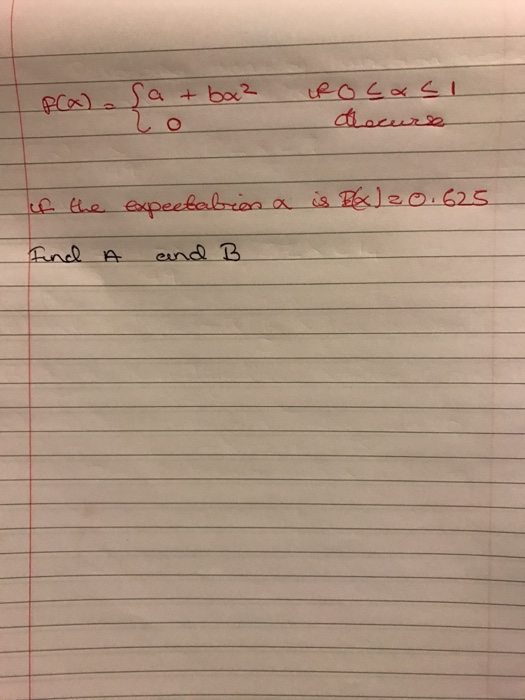 f(x) = { a + bx² if 0 ≤ x ≤ 1
0 otherwise
if the expectation x is E(x) = 0.625
Find A and B